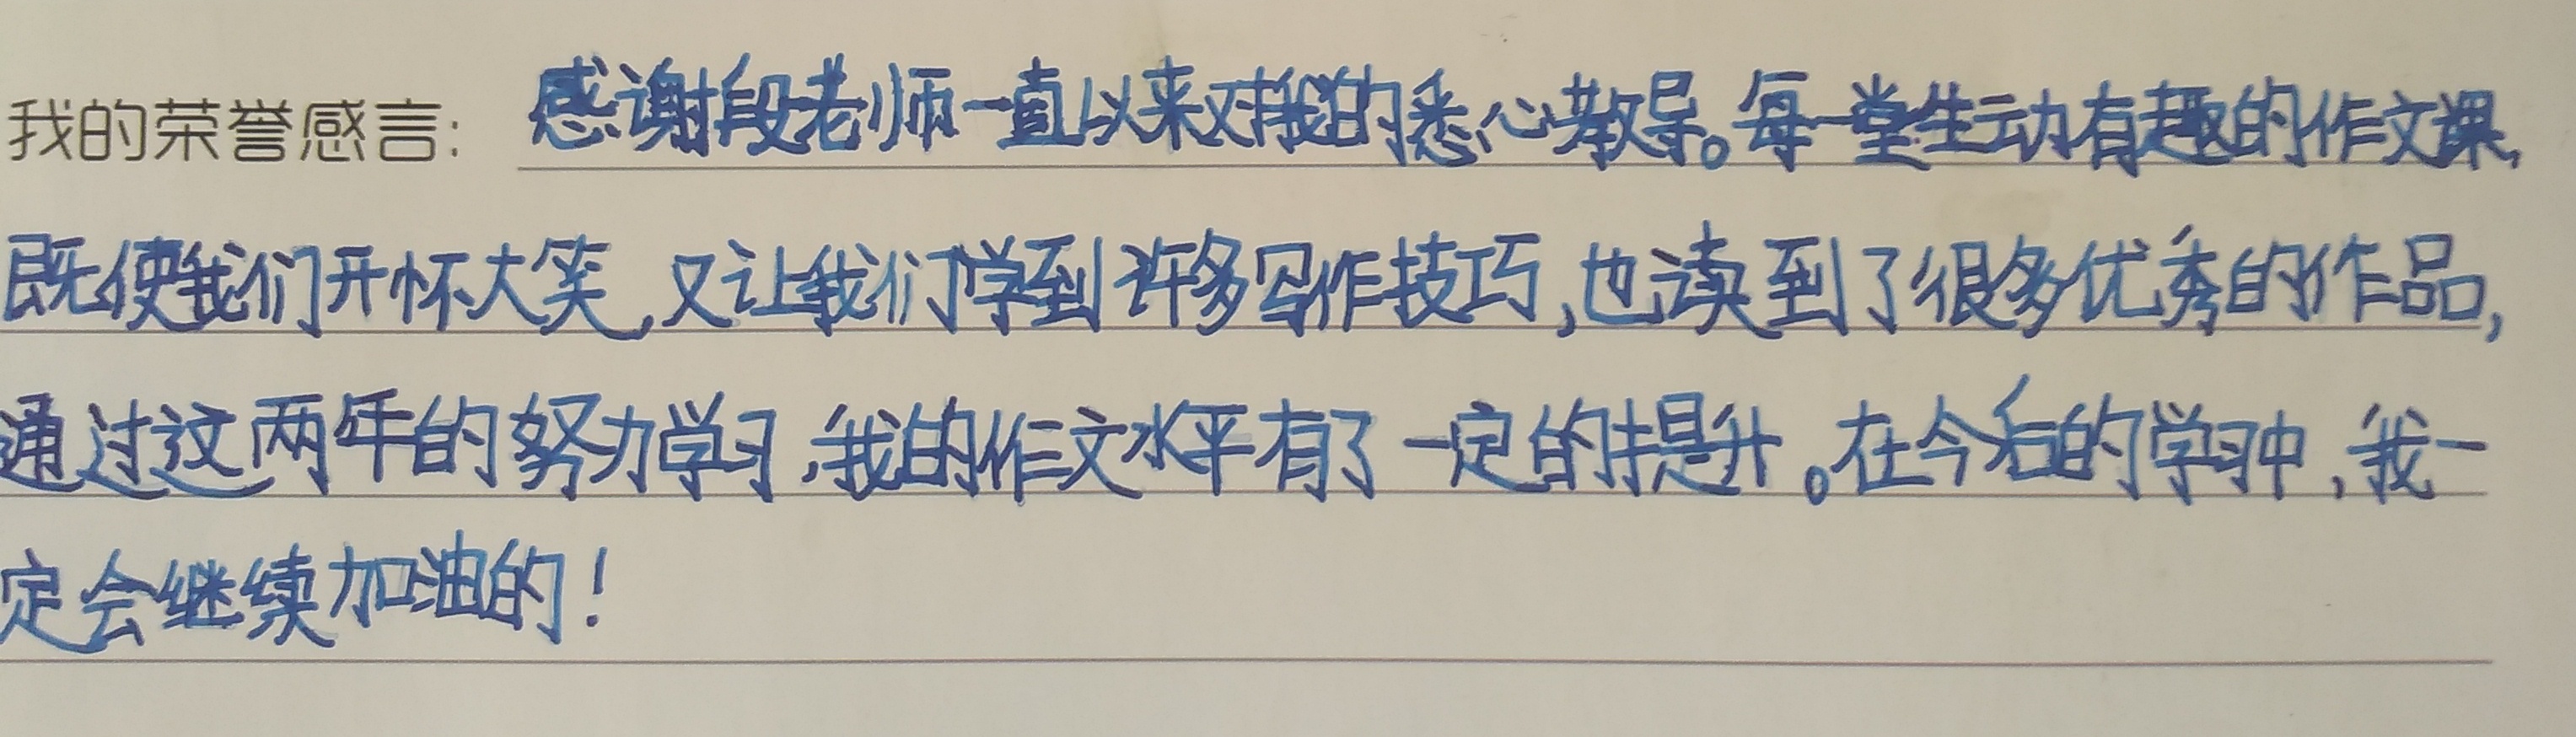 我的荣誉感言：感谢段老师一直以来对我的悉心教导。每一堂生动有趣的作文课，
既使我们开怀大笑，又让我们学到许多写作技巧，也读到了很多优秀的作品，
通过这两年的努力学习，我的作文水平有了一定的提升。在今后的学习中，我一
定会继续加油的！